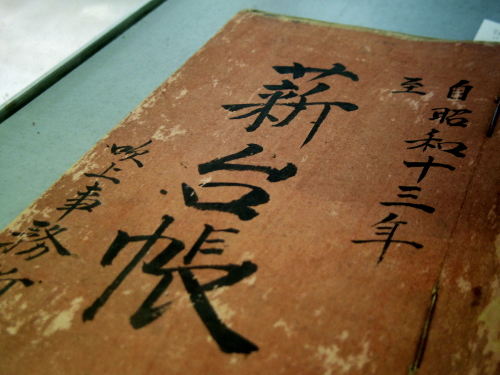 自昭和十三年
至
薪台帳
吹上事務所